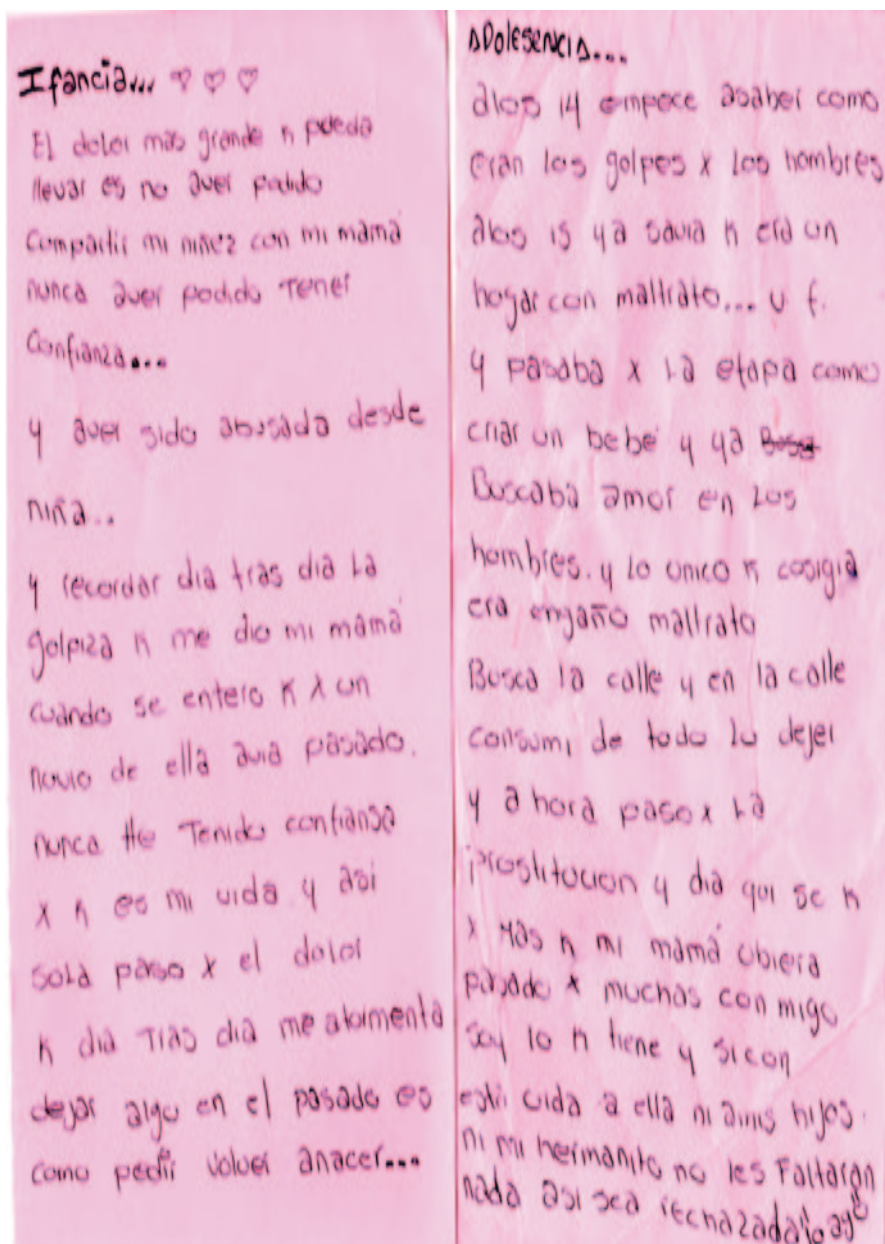 Ifancia... ♡ ♡ ♡
El dolor mas grande k pueda
llevar es no aver podido
Compartir mi niñez con mi mamá
nunca aver podido Tener
Confianza...
y aver sido abusada desde
niña...
y recordar dia tras dia La
golpiza k me dio mi mamá
cuando se entero k x un
novio de ella avia pasado.
nunca He Tenido confiansa
x k es mi vida y asi
sola paso x el dolor
k dia Tras dia me atormenta
dejar algo en el pasado es
como pedir volver anacer...
ADolesencia...
alos 14 empece asaber como
eran los golpes x los hombres
alos 15 ya savia k era un
hogar con maltrato... u f.
y pasaba x La etapa como
criar un bebé y ya
Buscaba amor en Los
hombres. y lo unico k cosigia
era engaño maltrato
Busca la calle y en la calle
consumi de todo Lo dejer
y ahora paso x La
prostitucion y dia qui se k
x mas k mi mamá ubiera
pasado x muchas con migo
soy lo k tiene y si con
esti vida a ella ni amis hijos.
ni mi hermanito no les Faltaran
nada asi sea rechazada lo ago